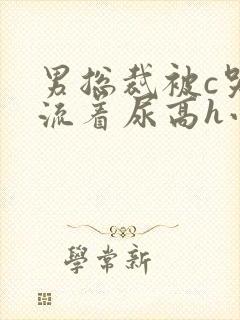 男总裁被c哭
流着尿高h小
學常新